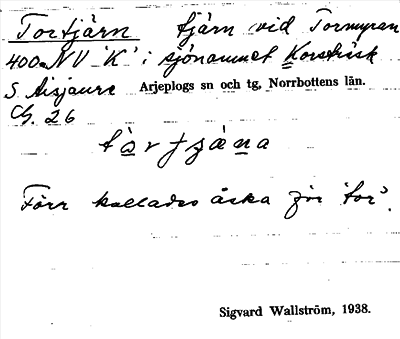 Tortjärn tjärn vid Tormyran
400 m NV 'K' i sjönamnet Korsträsk
S. Aisjaure Arjeplogs sn och tg, Norrbottens län.
26
Förr kallades åska för 'tor'.
Sigvard Wallström, 1938.